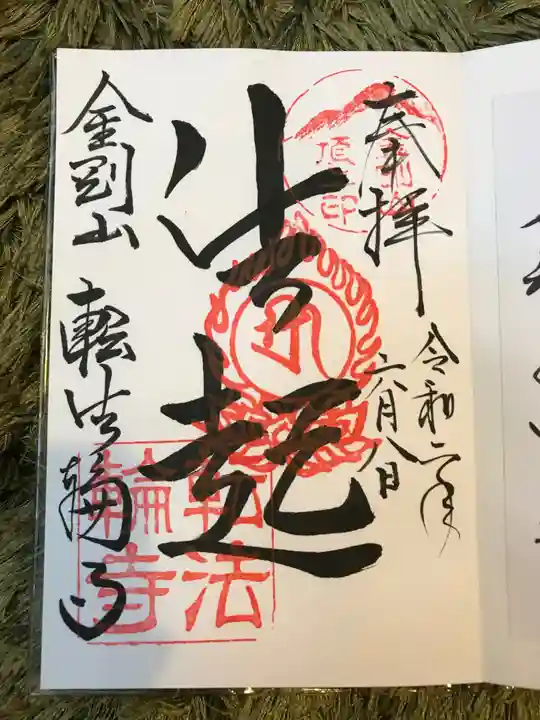 奉拝
令和二年
六月八日
法起
金剛山 転法輪寺
転法
輪寺